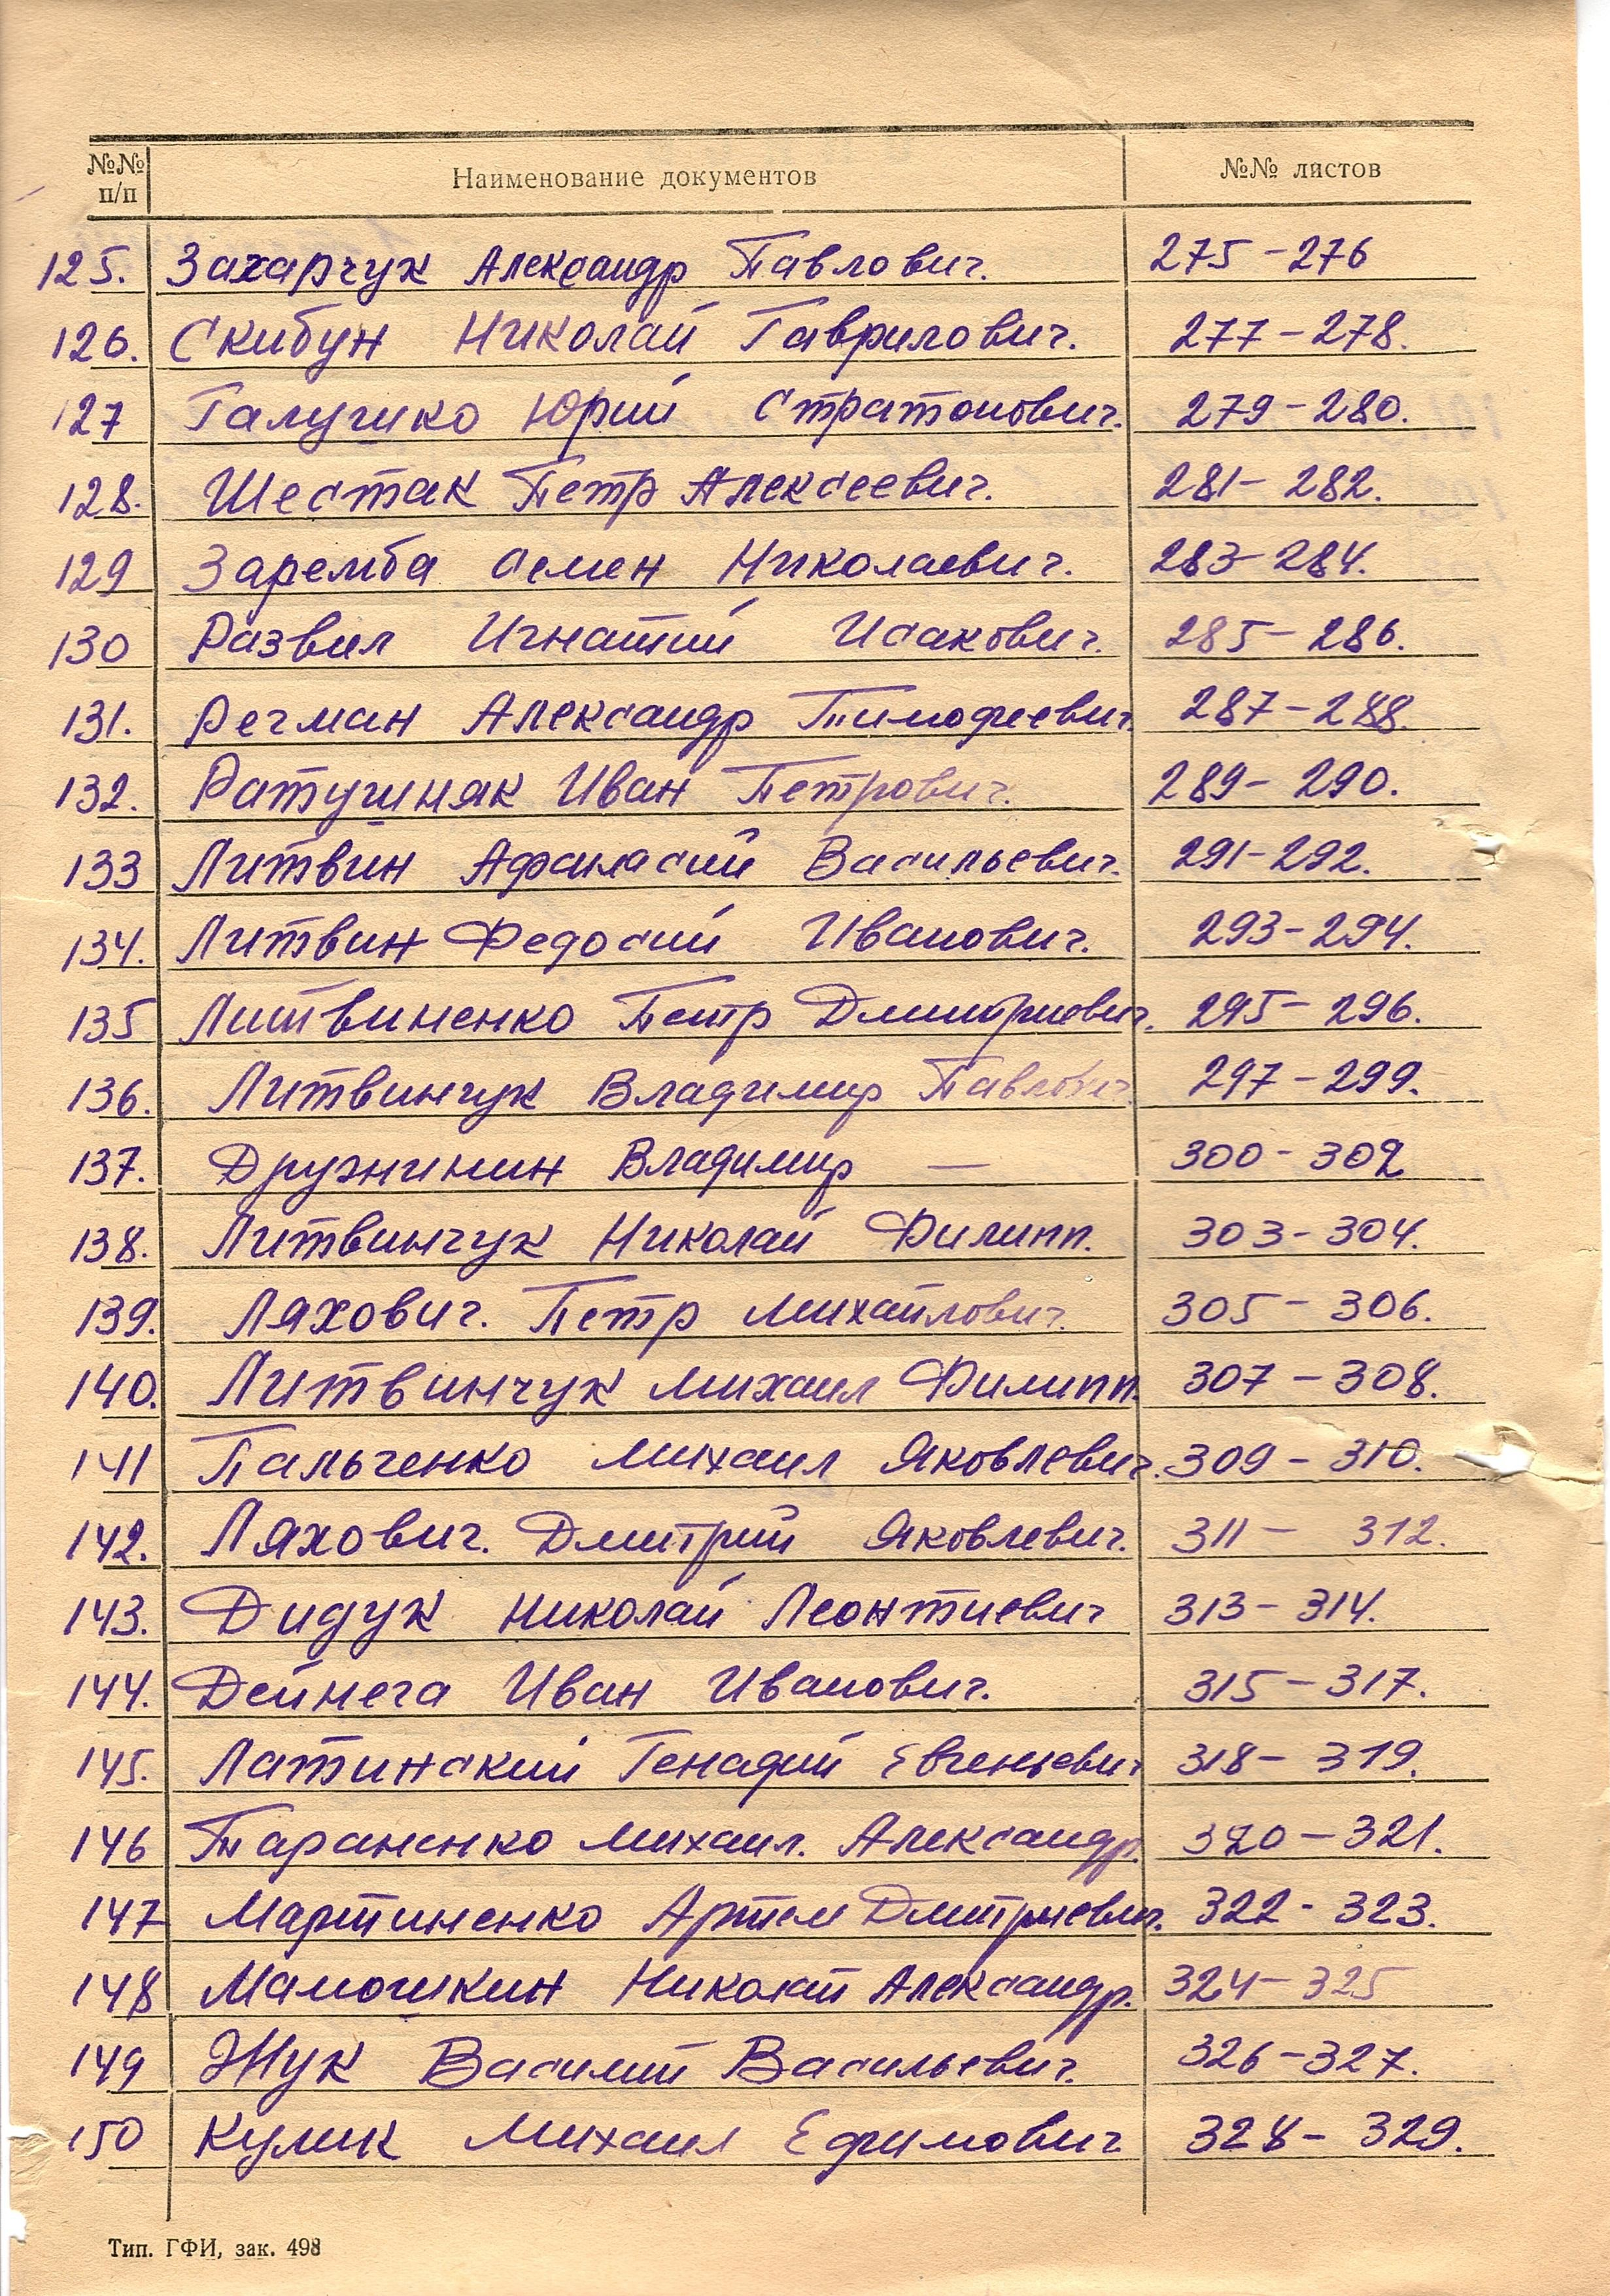 №№ п/п Наименование документов №№ листов
125. Захарчук Александр Павлович. 275-276
126. Скибун Николай Гаврилович. 277-278.
127 Галушко Юрий Стратонович. 279-280.
128. Шестак Петр Алексеевич. 281-282.
129 Заремба Семен Николаевич. 283-284.
130 Развил Игнатий Исакович. 285-286.
131. Речман Александр Тимофеевич. 287-288.
132. Ратушняк Иван Петрович. 289-290.
133 Литвин Афанасий Васильевич. 291-292.
134. Литвин Федосий Иванович. 293-294.
135 Литвиненко Петр Дмитриевич. 295-296.
136. Литвинчук Владимир Павлович 297-299.
137. Дружинин Владимир — 300-302
138. Литвинчук Николай Филипп. 303-304.
139. Ляхович. Петр Михайлович. 305-306.
140. Литвинчук Михаил Филипп. 307-308.
141 Пальченко Михаил Яковлевич. 309-310.
142. Ляхович. Дмитрий Яковлевич. 311-312.
143. Дидук Николай Леонтиевич 313-314.
144. Дейнега Иван Иванович. 315-317.
145. Латинский Генадий Евгеньевич 318-319.
146 Тараненко Михаил. Александр. 320-321.
147 Мартиненко Артем Дмитриевич. 322-323.
148 Мамошкин Николай Александр. 324-325
149 Жук Василий Васильевич. 326-327.
150 Кулик Михаил Ефимович 328-329.
Тип. ГФИ, зак. 498